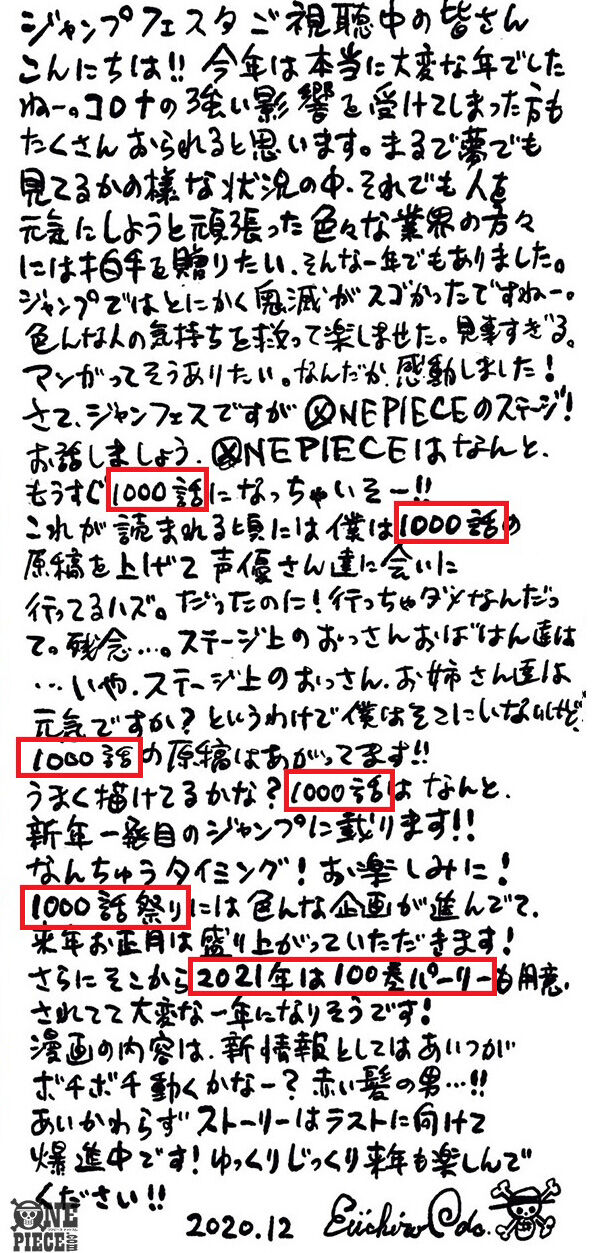 ジャンプフェスタご視聴中の皆さん
こんにちは!! 今年は本当に大変な年でした
ねー。コロナの強い影響を受けてしまった方も
たくさんおられると思います。まるで夢でも
見てるかの様な状況の中、それでも人を
元気にしようと頑張った色々な業界の方々
には拍手を贈りたい、そんな一年でもありました。
ジャンプではとにかく鬼滅がスゴかったですねー。
色んな人の気持ちを救って楽しませた。見事すぎる。
マンガってそうありたい。なんだか感動しました!
さて、ジャンフェスですが ONE PIECEのステージ!
お話しましょう。ONE PIECEはなんと、
もうすぐ1000話になっちゃいそー!!
これが読まれる頃には僕は1000話の
原稿を上げて声優さん達に会いに
行ってるハズ。だったのに!行っちゃダメなんだっ
て。残念…。ステージ上のおっさんおばはん達は
…いや、ステージ上のおっさん、お姉さん達は
元気ですか?というわけで僕はそこにいないけど
1000話の原稿はあがってます!!
うまく描けてるかな?1000話はなんと、
新年一発目のジャンプに載ります!!
なんちゅうタイミング!お楽しみに!
1000話祭りには色んな企画が進んでて、
来年お正月は盛り上がっていただきます!
さらにそこから2021年は100巻パーリーも用意
されてて大変な一年になりそうです!
漫画の内容は、新情報としてはあいつが
ボチボチ動くかなー?赤い髪の男…!!
あいかわらずストーリーはラストに向けて
爆進中です!ゆっくりじっくり来年も楽しんで
ください!!
2020.12 Eiichiro Oda.
ONE
PIECE.COM